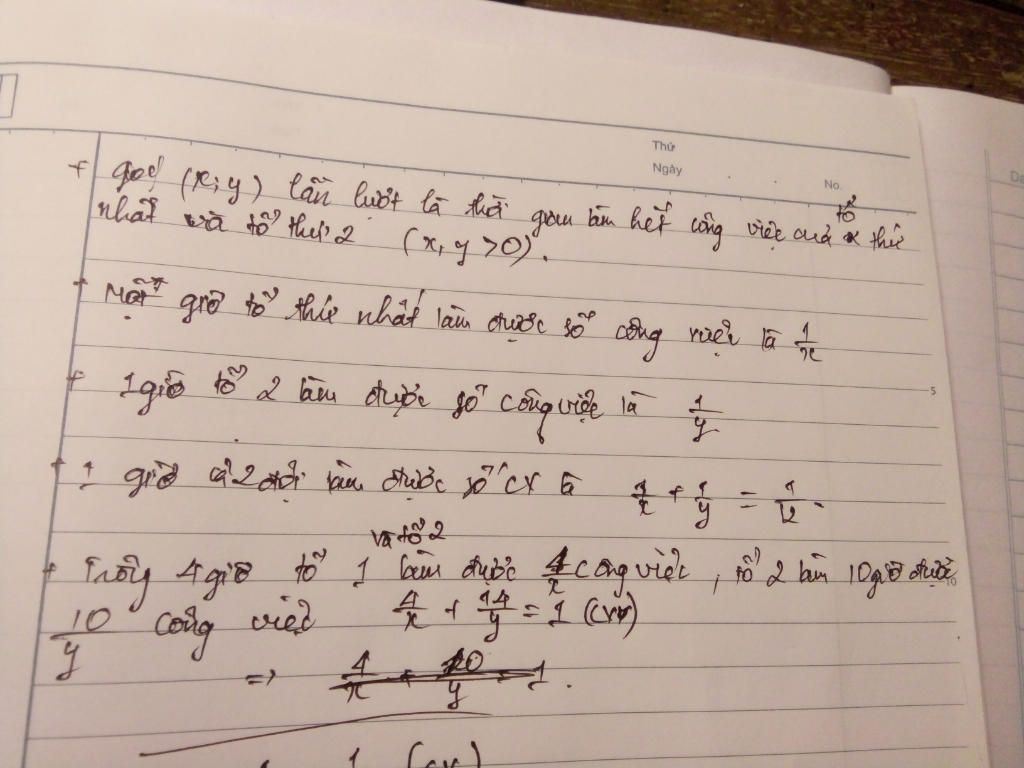 Thứ
Ngày
No.
+ gọi (x; y) lần lượt là thời gian làm hết công việc của tổ thứ
nhất và tổ thứ 2 (x, y >0).
+ Một giờ tổ thứ nhất làm được số công việc là 1/x
5
+ 1 giờ tổ 2 làm được số công việc là 1/y
+ 1 giờ cả 2 đội làm được số CV là 1/x + 1/y = 1/12.
và tổ 2
+ Trong 4 giờ tổ 1 làm được 4/x công việc, tổ 2 làm 10 giờ được
10
10/y công việc 4/x + 14/y = 1 (CV)
=> 4/x + 10/y = 1.
1 (CV)